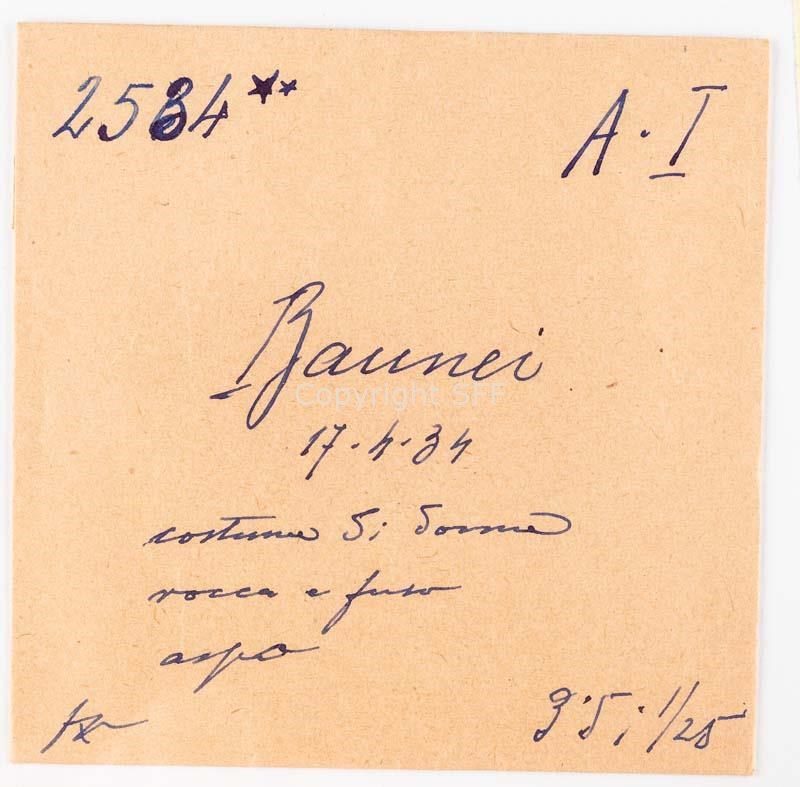 2534** A·I
Baunei
Copyright SFF
17·4·34
costume di donna
rocca e fuso
aspo
1/25